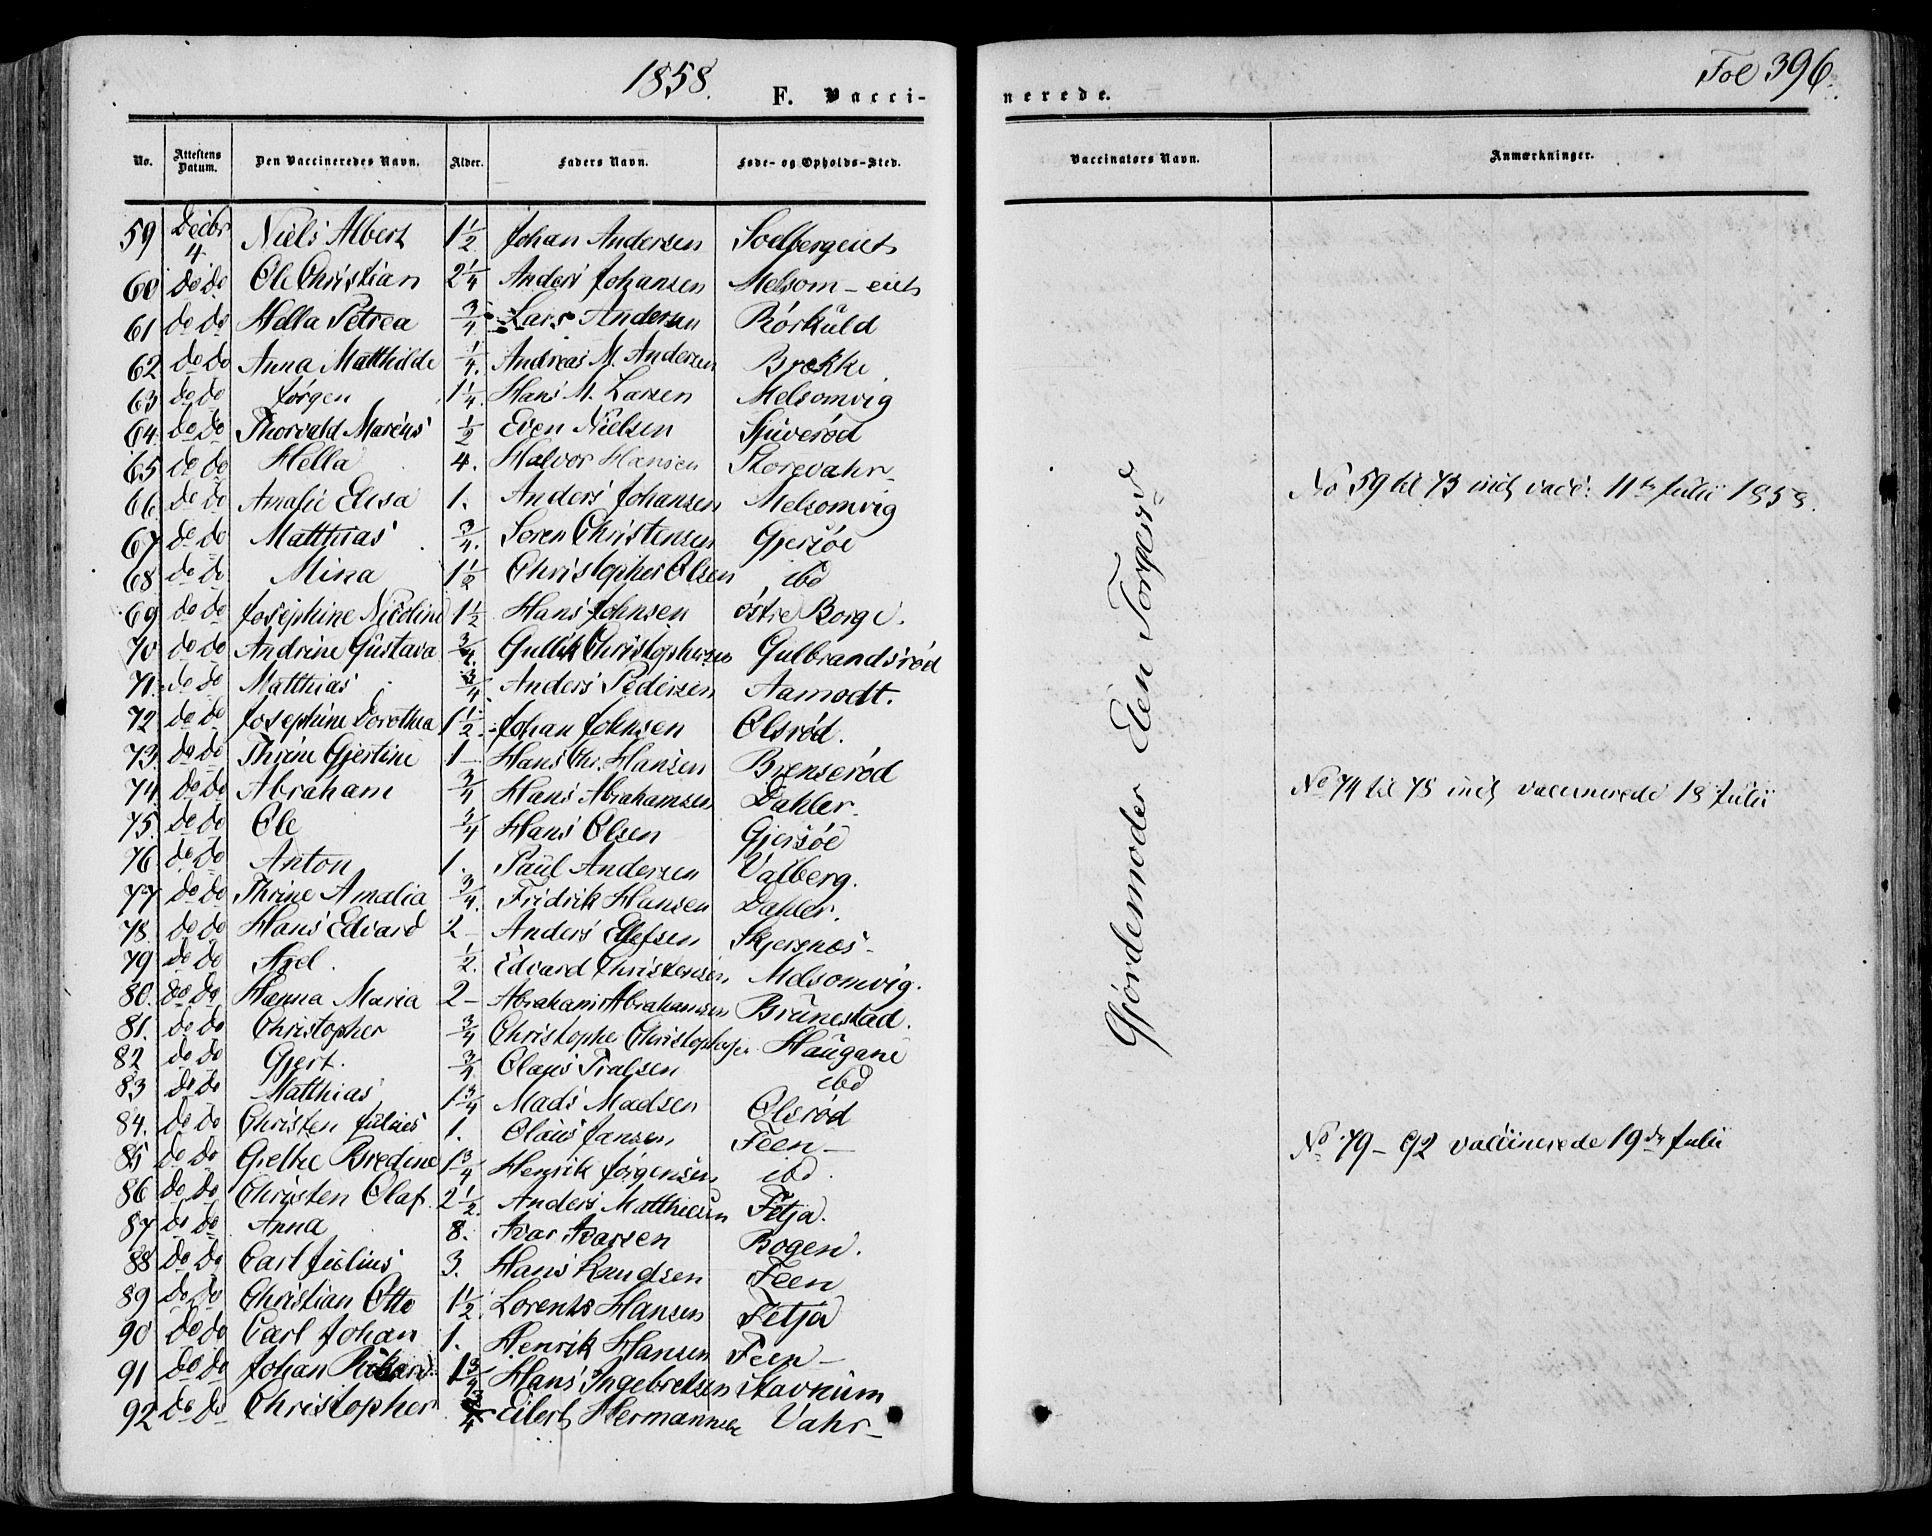 1858.
F. Vacci-
nerede.
Fol 396.
No. Attestens Datum. Den Vaccineredes Navn. Alder. Faders Navn. Føde- og Opholds-Sted. Vaccinators Navn. Anmærkninger.
59 Decbr 4 Niels Albert 1½ Johan Andersen Soelbergeiet
60 do do Ole Christian 2¼ Anders Johansen Melsom-eiet
61 do do Hella Petrea ¾ Lars Andersen Rørkuld
62 do do Anna Matthilde ¼. Andreas M. Andersen Brekke
63 do do Jørgen 1¼. Hans M. Larsen Melsomvig
64. do do Thorvald Marius ½ Even Nielsen Sjuverød
65 do do Hella 4. Halvor Hansen Storevahr
66 do do Amalie Elisa 1. Anders Johansen Melsomvig
67 do do Matthias ¾. Søren Christensen Gjersøe
68 do do Mina 1½ Christopher Olsen ibd
69 do do Josephine Nicoline 1½ Hans Johnsen østre Borge.
70 do do Andrine Gustava ¾. Gullik Christophersen Gulbrandsrød
71. do do Matthias ¾ Anders Pedersen Aamodt.
72 do do Josephine Dorothea 1½. Johan Johnsen Olsrød.
73. do do Thrine Gjertine 1- Hans Chr. Hansen Brenserød
74. do do Abraham ¾ Hans Abrahamsen Dahler.
75. do do Ole ¾ Hans Olsen Gjersøe
76 do do Anton 1. Paul Andersen Valberg.
77 do do Thrine Amalia ¾. Fridrik Hansen Dahler.
78. do do Hans Edvard 2- Anders Ellefsen Skjersnes-
79 do do Axel. ½. Edvard Christensen Melsomvig.
80. do do Hanna Maria 2- Abraham Abrahamsen Brunestad.
81. do do Christopher ¾ Christophe Christophersen Haugane
82 do do Gjert. ¾ Olaus Tralsen ibd
83 do do Matthias 1¾ Mads Madsen Olsrød
84. do do Christen Julius 1. Olaus Jansen Feen-
85 do do Grethe Bredine 1¾ Henrik Jørgensen ibd.
86 do do Christen Olaf 2½. Anders Matthiesen Fetja.
87 do do Anna 8. Ivar Ivarsen Bogen.
88 do do Carl Julius 3. Hans Knudsen Feen
89 do do Christian Otto 1½. Lorents Hansen Fetja
90 do do Carl Johan 1. Henrik Hansen Feen-
91 do do Johan Rikard 1¾ Hans Ingebretsen Stavnum
92 do do Christopher ¾ Eilert Hermansen Vahr-
Gjordemoder Elen Torgersd
No 59 til 73 incl vacc: 11te Julii 1858.
No 74 til 78 incl vaccinerede 18 Julii
No 79 - 92 vaccinerede 19de Julii